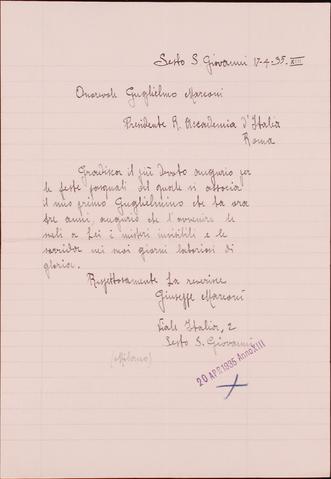 Sesto S. Giovanni 17-4-35-XIII
Onorevole Guglielmo Marconi
Presidente R. Accademia d'Italia
Roma
Gradisca il più devoto augurio per
le feste pasquali al quale si associa
il mio primo Guglielmino che ha ora
tre anni, augurio che l'avvenire le
sveli a Lei i misteri invisibili e le
sorrida nei suoi giorni laboriosi di
gloria.
Rispettosamente La riverisce
Giuseppe Marconi
Viale Italia, 2
Sesto S. Giovanni
(Milano)
20 APR 1935 Anno XIII